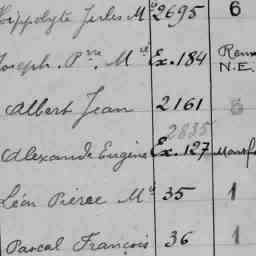 Hippolyte Jules M 2695 6
Joseph. Pre. M Ex. 184
N.E.
Albert Jean 2161
2835
Alexandre Eugène Ex. 127
Léon Pierre M 35 1
Pascal François 36 1